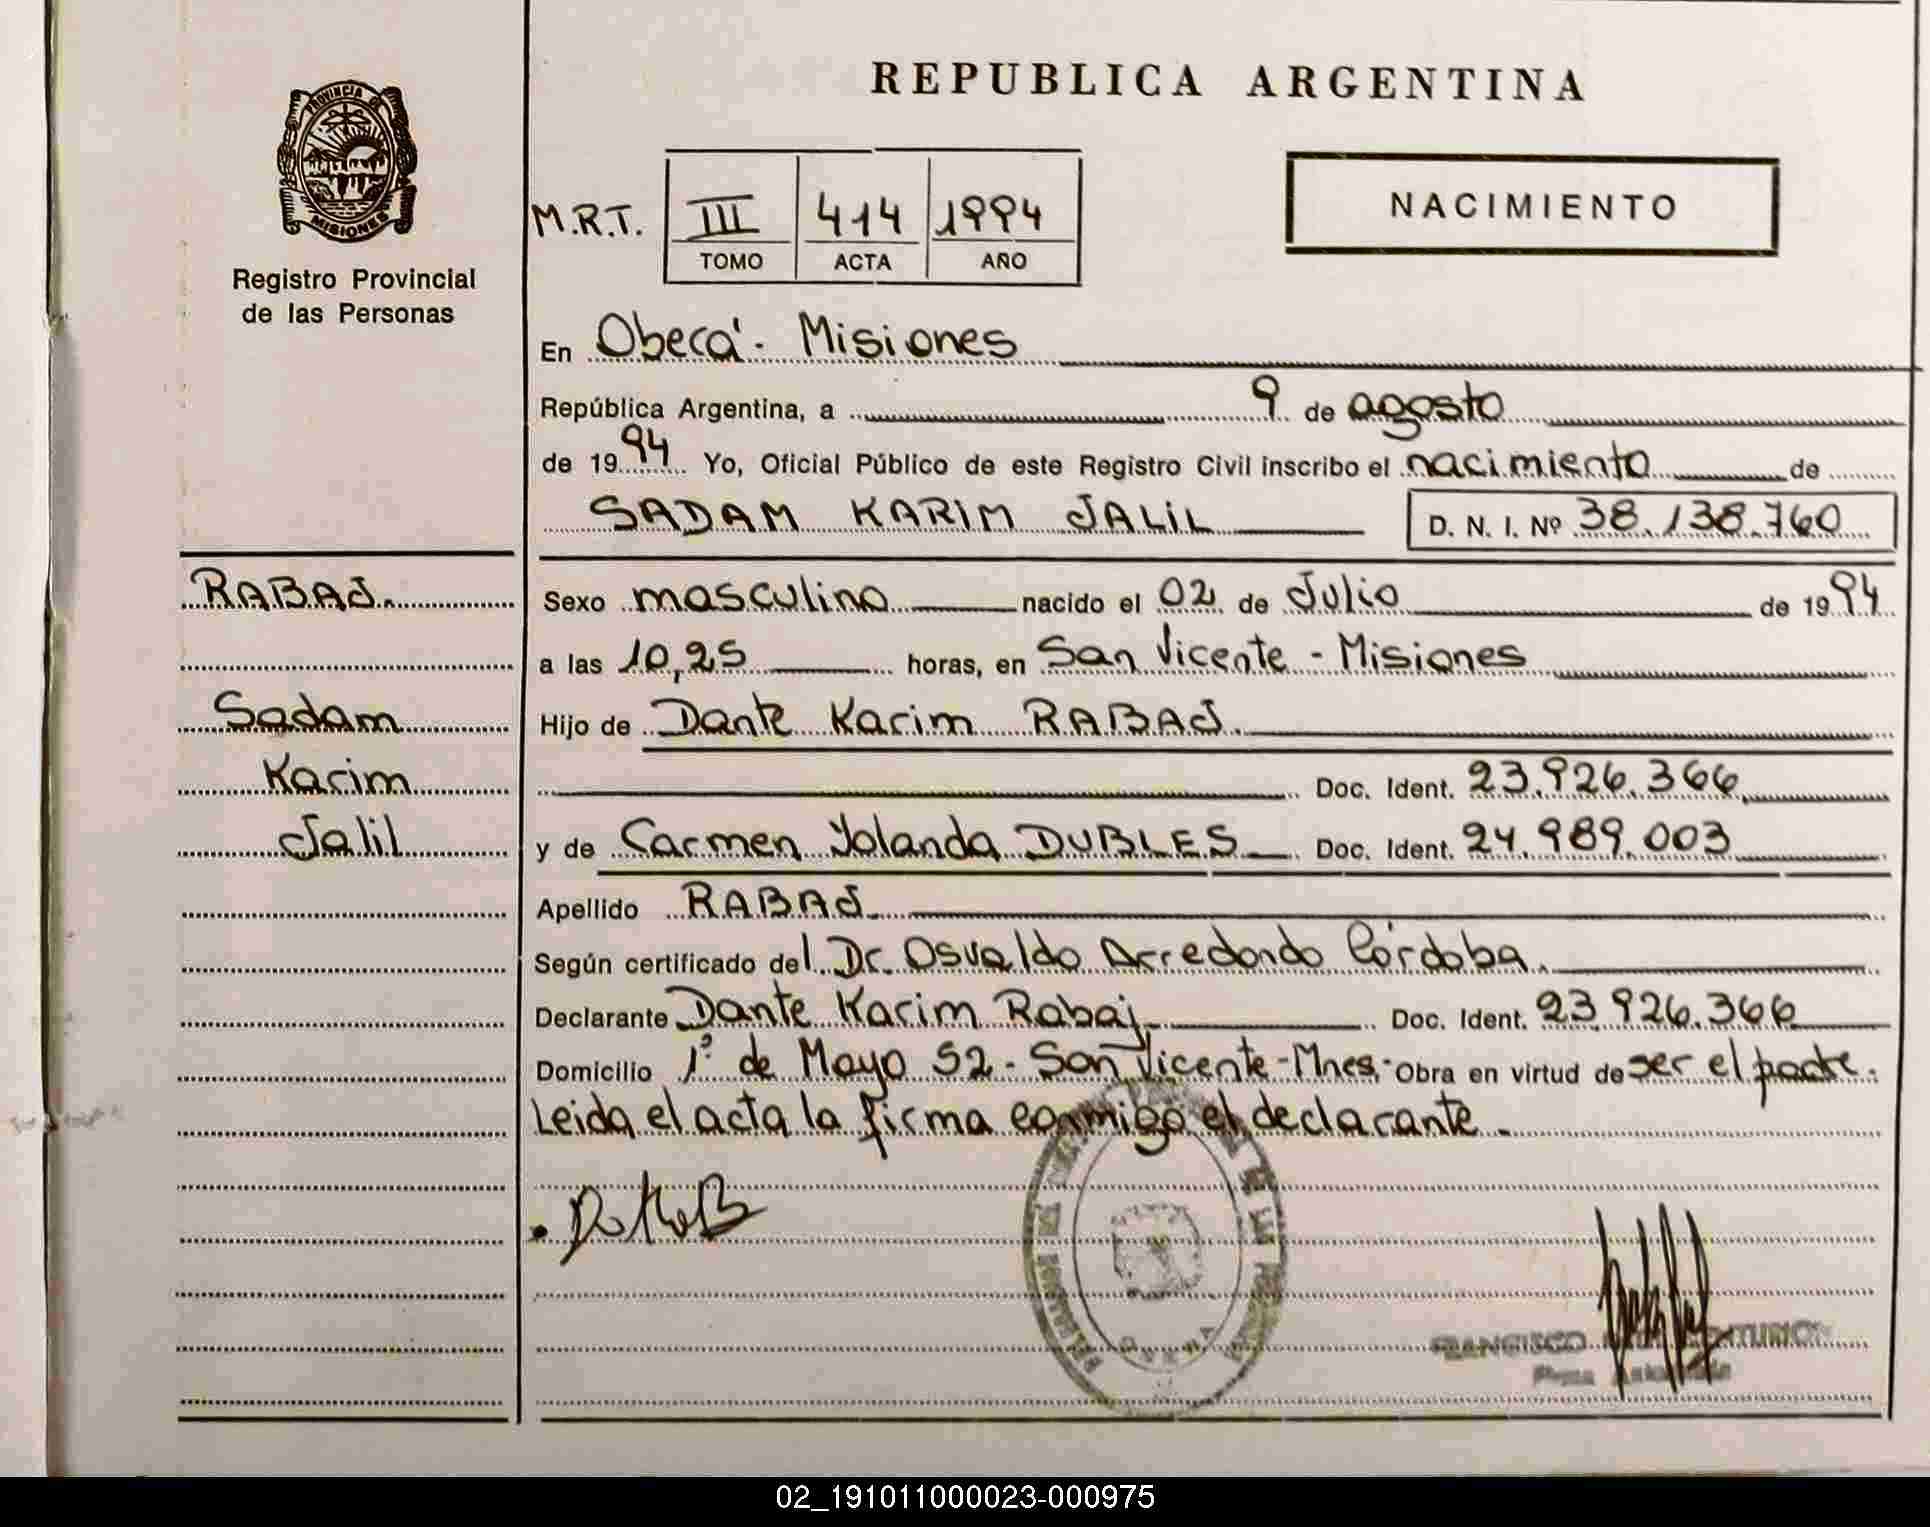 REPUBLICA ARGENTINA
PROVINCIA DE
MISIONES
Registro Provincial
de las Personas
NACIMIENTO
M.R.T. III 414 1994
TOMO ACTA AÑO
En Oberá - Misiones
República Argentina, a 9 de agosto
de 1994 Yo, Oficial Público de este Registro Civil inscribo el nacimiento de
SADAM KARIM JALIL D. N. I. Nº 38.138.760
RABAJ.
Sadam
Karim
Jalil
Sexo masculino nacido el 02 de Julio de 1994
a las 10,25 horas, en San Vicente - Misiones
Hijo de Dante Karim RABAJ.
Doc. Ident. 23.926.366
y de Carmen Yolanda DUBLES Doc. Ident. 24.989.003
Apellido RABAJ
Según certificado del Dr. Osvaldo Arredondo Córdoba.
Declarante Dante Karim Rabaj Doc. Ident. 23.926.366
Domicilio 1º de Mayo 52 - San Vicente - Mnes.- Obra en virtud de ser el padre.
Leida el acta la firma conmigo el declarante.
FRANCISCO
02_191011000023-000975